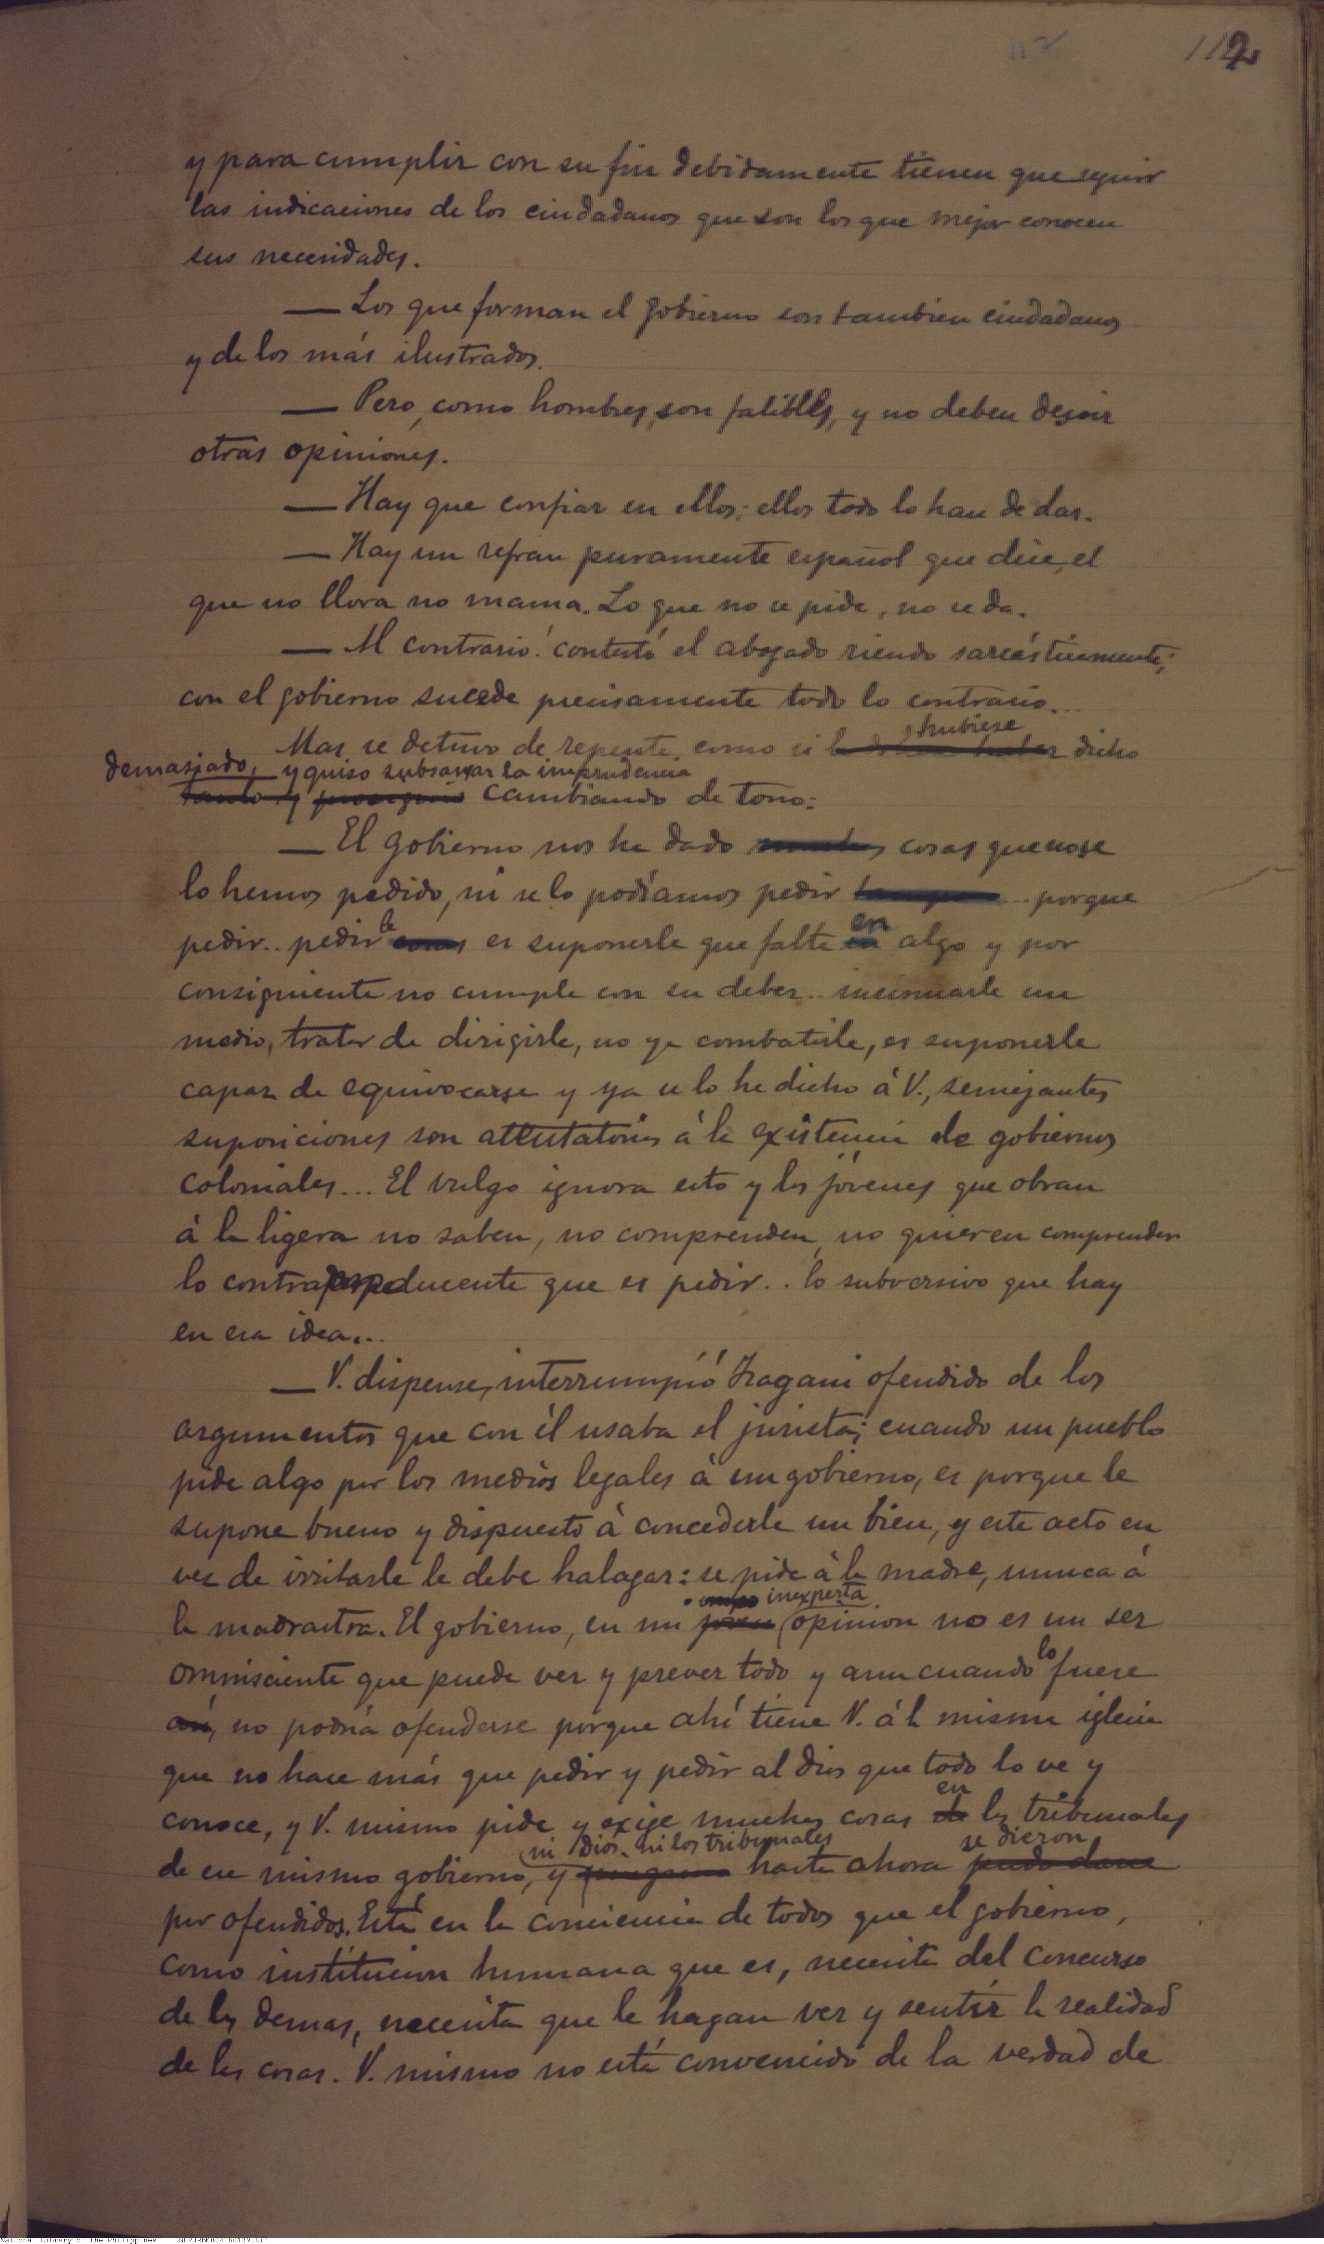 112
y para cumplir con su fin debidamente tienen que seguir
las indicaciones de los ciudadanos que son los que mejor conocen
sus necesidades.
— Los que forman el gobierno son tambien ciudadanos
y de los más ilustrados.
— Pero, como hombres, son falibles, y no deben desoir
otras opiniones.
— Hay que confiar en ellos; ellos todo lo han de dar.
— Hay un refran puramente español que dice, el
que no llora no mama. Lo que no se pide, no se da.
— Al contrario! contestó el abogado riendo sarcásticamente;
con el gobierno sucede precisamente todo lo contrario...
hubiese
Mas se detuvo de repente como si dicho
demasiado, y quiso subsanar la imprudencia
tanto y prosiguió cambiando de tono:
— El gobierno nos ha dado cosas que no se
lo hemos pedido, ni se lo podíamos pedir ... porque
pedir.. pedir le es suponerle que falte en algo y por
consiguiente no cumple con su deber.. insinuarle un
medio, tratar de dirigirle, no ya combatirle, es suponerle
capaz de equivocarse y ya se lo he dicho á V., semejantes
suposiciones son attentatorias á la existencia de gobiernos
coloniales... El vulgo ignora esto y los jóvenes que obran
á la ligera no saben, no comprenden, no quieren comprender
lo contraproducente que es pedir.. lo subversivo que hay
en esa idea...
— V. dispense, interrumpió Isagani ofendido de los
argumentos que con él usaba el jurista; cuando un pueblo
pide algo por los medios legales á un gobierno, es porque le
supone bueno y dispuesto á concederle un bien, y este acto en
vez de irritarle le debe halagar: se pide á la madre, nunca á
inexperta
la madrastra. El gobierno, en mi joven opinion no es un ser
omnisciente que puede ver y prever todo y aun cuando lo fuese
así, no podría ofenderse porque ahí tiene V. á la misma iglesia
que no hace más que pedir y pedir al dios que todo lo ve y
conoce, y V. mismo pide y exige muchas cosas en los tribunales
ni Dios ni los tribunales se dieron
de ese mismo gobierno, y hasta ahora pudo darse
por ofendidos. Está en la conciencia de todos que el gobierno,
como institucion humana que es, necesita del concurso
de los demas, necesita que le hagan ver y sentir la realidad
de las cosas. V. mismo no está convencido de la verdad de